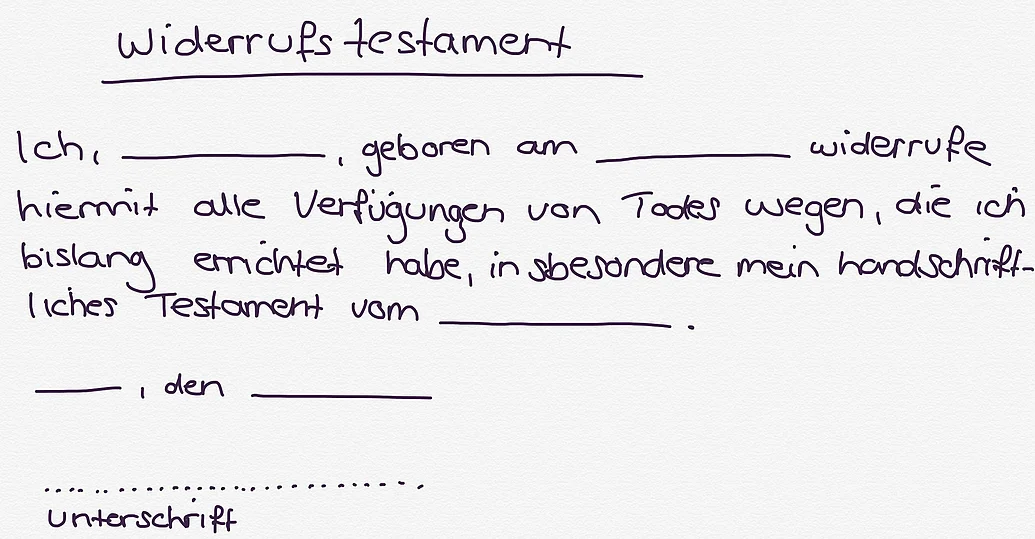 Widerrufstestament
Ich, __________, geboren am __________ widerrufe
hiermit alle Verfügungen von Todes wegen, die ich
bislang errichtet habe, insbesondere mein handschrift-
liches Testament vom __________.
_____, den __________
..............................
Unterschrift